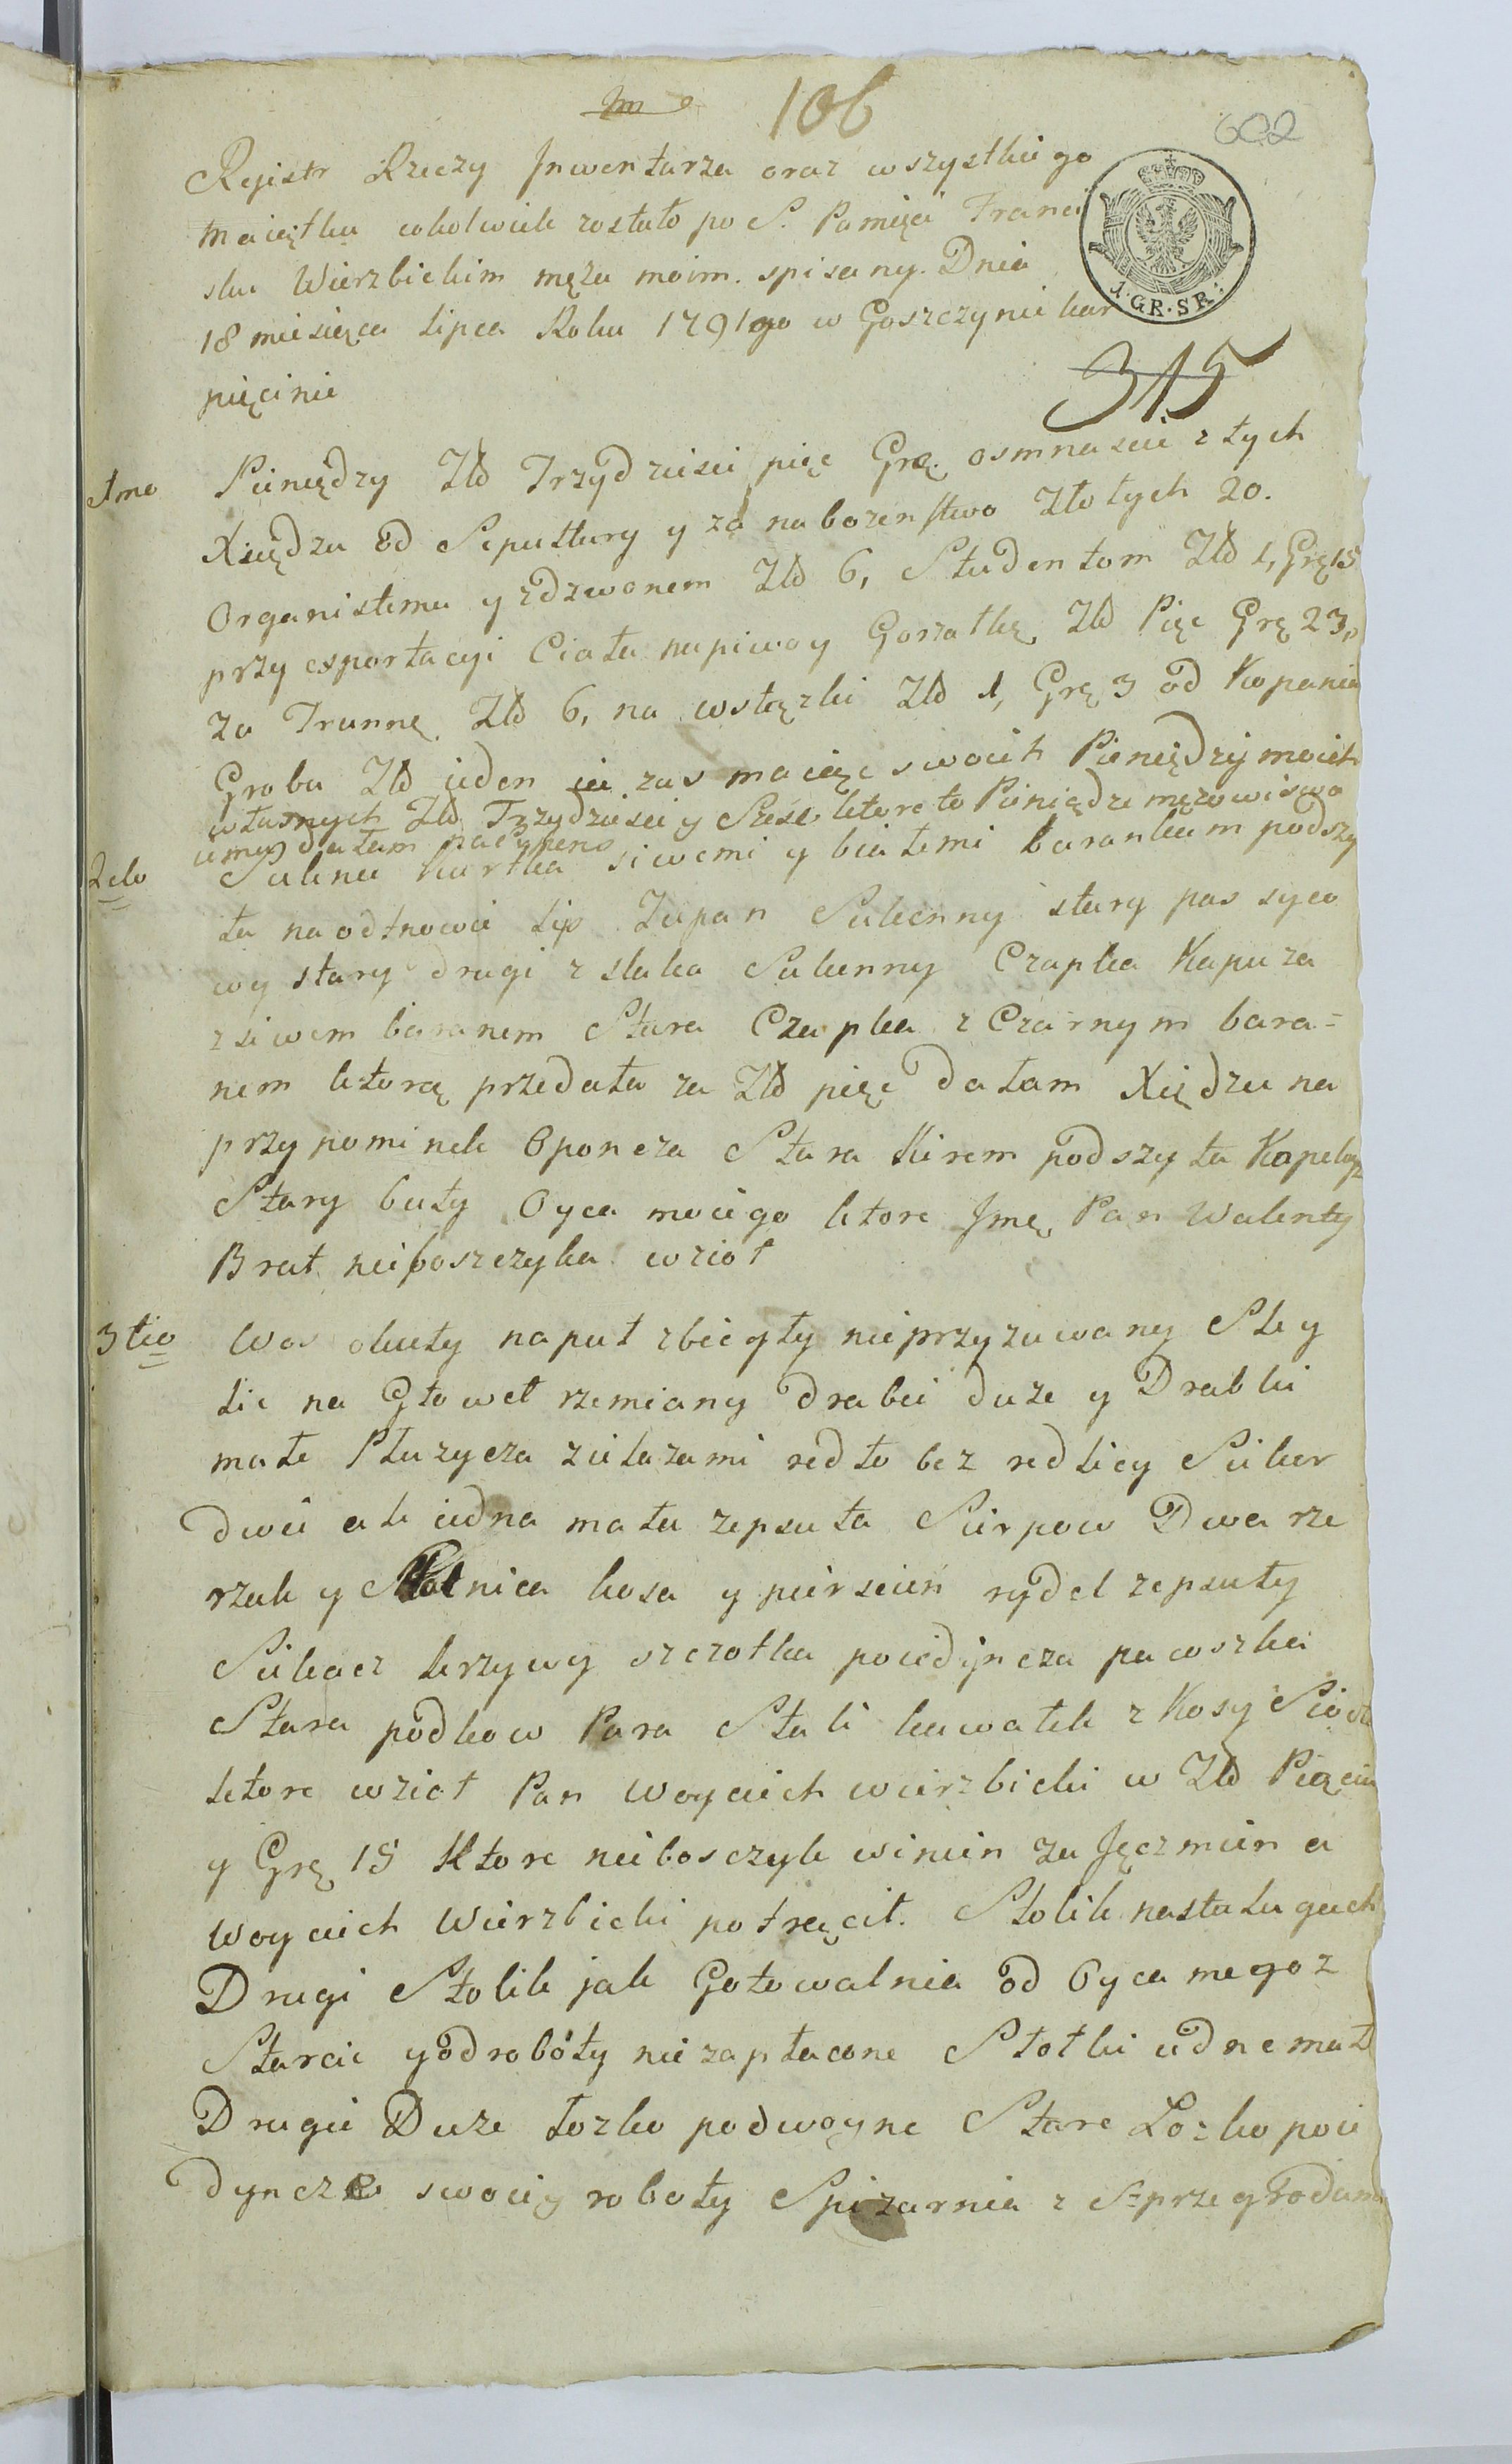 106
602
Rejistr Rzeczy Jnwentarza oraz wszystkiego
maiątku cokolwiek zostało po S. Pamięci Franci
sku Wierzbickim mężu moim. spisany. Dnia
18 miesiąca Lipca Roku 1791go w Goszczynie kar
pięcinie
1. GR. SR.
315
1mo Pieniędzy Złb Trzydzieści pięć Grę. osmnascie z tych
Xiędzu od Sepultury y za nabozenstwo Złotych 20.
Organistemu y zdzwonem Złb 6, Studentom Złb 1, Grę 15
przy exportacyi Ciała na piwo y Gorzałkę Złb Pięc Grę 23,
za Trunnę Złb 6, na wstęzki Złb 1, Grę 3 od Kopania
Grobu Złb ieden ia zas maiąc swoich Pieniędzy moich
własnych Złb Trzydziesci y Sześc ktore to Pieniądze mężowi
dałam
2do Suknia kurtka siwemi y białemi barankiem podszy
ta na odtnowie Lip Zupan Sukienny stary pas syco
wy stary drugi z sluka Sukienny Czapka Kapuza
z siwem baranem Stara Czapka z Czarnym bara=
nem ktorą przedała za Złb pięc dałam Xiędzu na
przypominek Oponcza Stara Kirem podszyta Kapelusz
Stary buty Oyca moiego ktore Jmę Pan Walenty
Brat nieboszczyka wzioł
3tio Wos okuty na puł zbiegły nieprzyzuwany Sk y
Lic na Głowet rzemiany drabie duze y Drabki
małe Płuzyca zielazami redło bez redlicy Sieker
dwie ale iedna mała zepsuta Sierpow Dwa rze
rzak y nica kosa y pierscień rydel zepsuty
Siekacz krzywy szczotka poiedyncza pawszka
Stara podkow Para Stali kawałek z Kosy
ktore wzioł Pan Woyciech wierzbicki w Złb Pięciu
y Grę 15 Ktore nieboszczyk winien za Jęczmien a
Woyciech Wierzbicki potrącił. Stolik nastalugach
Drugi Stolik jak Gotowalnia od Oyca mego z
Starcie y od roboty nie zapłacone Stołki iedne małe
Drugie Duze łozko podwoyne Stare Łozko poie
dyncze swoiey roboty Spizarnia z Sz przegrodami